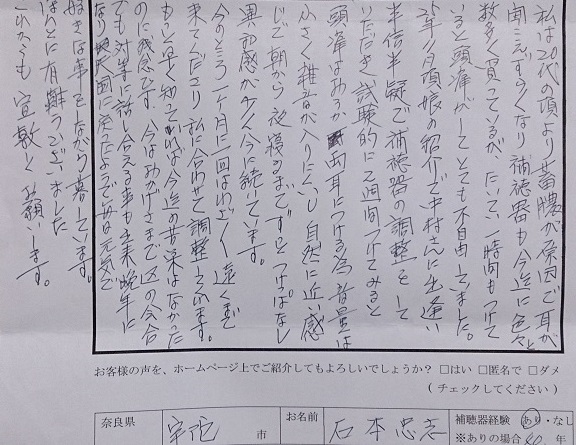 私は20代の頃より蓄膿が原因で耳が
聞こえずらくなり 補聴器も今迄に色々と
数多く買っているが、たいてい一時間もつけて
いると頭痛がしてとても不自由してました。
25年11月頃娘の紹介で中村さんに出逢い
半信半疑で補聴器の調整をして
いただき 試験的に2週間つけてみると
頭痛はあるか 両耳につける為 音量は
小さく 雑音が入りにくいし 自然に近い感
じで 朝から夜寝るまでずーとつけっぱなし
異和感が少く 今に続いています。
今のところ一ケ月に一回はわざわざ遠くまで
来てくださり 私に合わせて調整してくれます。
もっと早く知っていれば 今迄の苦労はなかった
のに残念です 今はおかげさまで 区の会合
でも対等に話し合える事も出来 晩年に
なり 天国に来たようで 毎日元気で
好きな事をしながら暮しています。
ほんとに有難うございました
これからも宜敷くお願いします。
お客様の声を、ホームページ上でご紹介してもよろしいでしょうか? □はい □匿名で □ダメ
(チェックしてください)
奈良県 宇陀 市 お名前 石本忠志 補聴器経験 あり・なし
※ありの場合 年